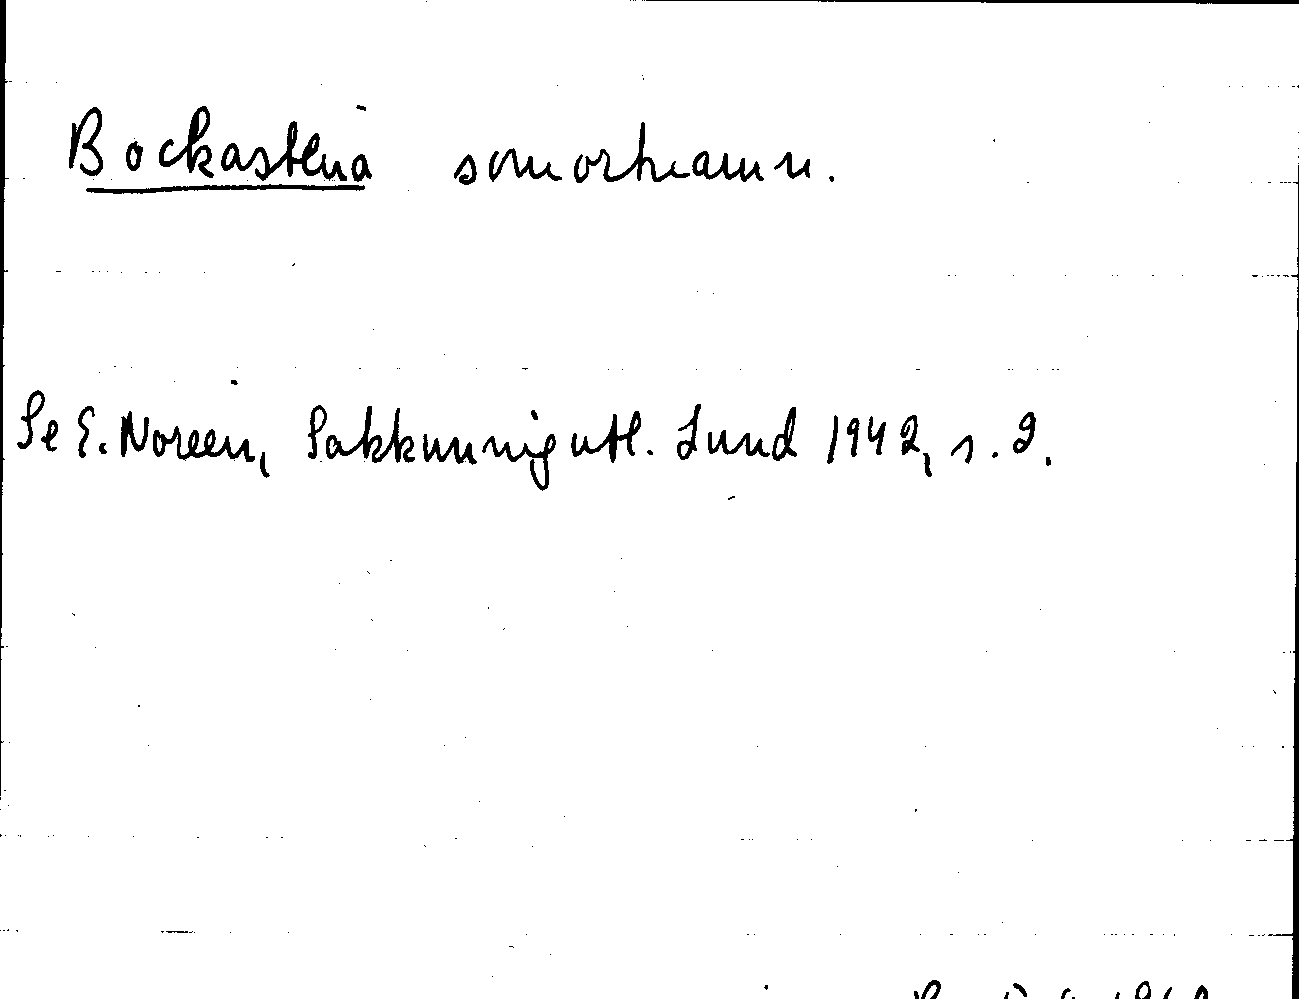 Bockastena som ortnamn.
Se E. Noreen, Sakkunnigutl. Lund 1942, s. 9.